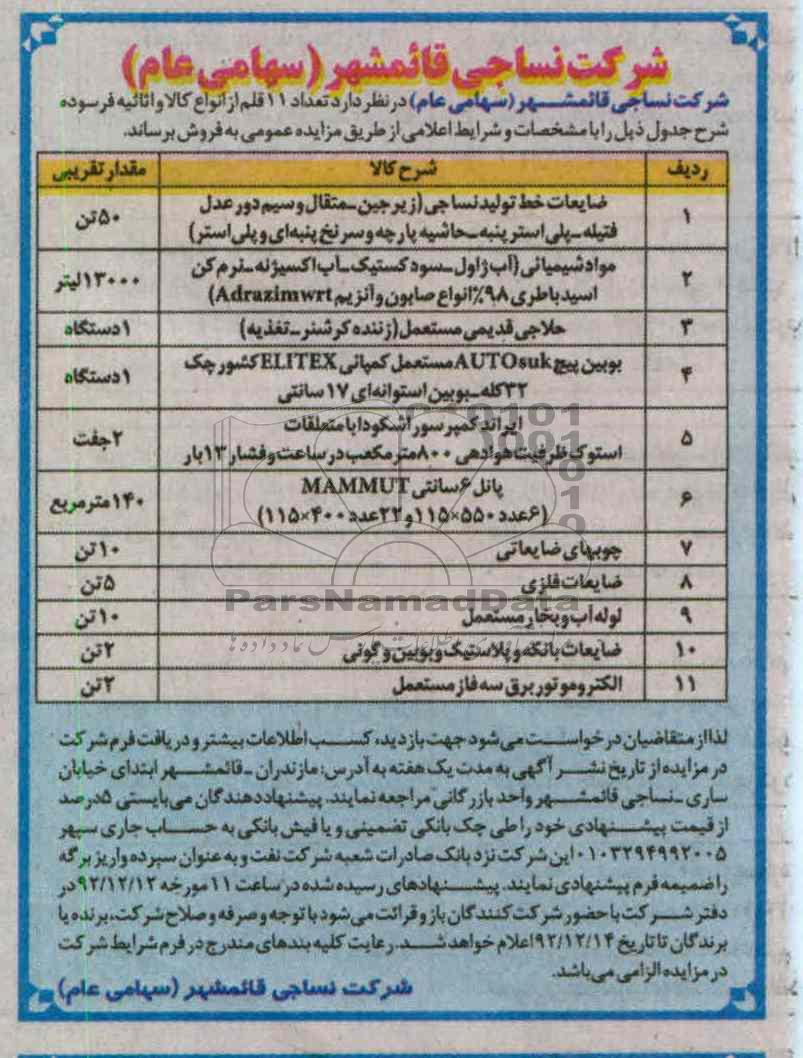 شرکت نساجی قائمشهر (سهامی عام)
شرکت نساجی قائمشهر (سهامی عام) در نظر دارد تعداد ۱۱ قلم از انواع کالا و اثاثیه فرسوده
شرح جدول ذیل را با مشخصات و شرایط اعلامی از طریق مزایده عمومی به فروش برساند.
ردیف شرح کالا مقدار تقریبی
۱ ضایعات خط تولید نساجی (زیرجین ـ متقال و سیم دور عدل ۵۰ تن
فتیله ـ پلی استر پنبه ـ حاشیه پارچه و سرنخ پنبه‌ای و پلی استر)
۲ مواد شیمیائی (آب ژاول ـ سود کستیک ـ آب اکسیژنه ـ نرم کن ۱۳۰۰۰ لیتر
اسید باطری ۹۸٪ انواع صابون و آنزیم Adrazimwrt)
۳ حلاجی قدیمی مستعمل (زننده کرشنر ـ تغذیه) ۱ دستگاه
۴ بوبین پیچ AUTOsuk مستعمل کمپانی ELITEX کشور چک ۱ دستگاه
۳۲ کله ـ بوبین استوانه‌ای ۱۷ سانتی
۵ ایراند کمپرسور اشکودا با متعلقات ۲ جفت
استوک ظرفیت هوادهی ۸۰۰ متر مکعب در ساعت و فشار ۱۳ بار
۶ پانل ۶ سانتی MAMMUT ۱۴۰ متر مربع
(۶ عدد ۵۵۰×۱۱۵ و ۲۲ عدد ۴۰۰×۱۱۵)
۷ چوبهای ضایعاتی ۱۰ تن
۸ ضایعات فلزی ۵ تن
۹ لوله آب و بخار مستعمل ۱۰ تن
۱۰ ضایعات بانکه و پلاستیک و بوبین و گونی ۲ تن
۱۱ الکتروموتور برق سه فاز مستعمل ۲ تن
ParsNamadData
لذا از متقاضیان درخواست می شود جهت بازدید، کسب اطلاعات بیشتر و دریافت فرم شرکت
در مزایده از تاریخ نشر آگهی به مدت یک هفته به آدرس: مازندران ـ قائمشهر ابتدای خیابان
ساری ـ نساجی قائمشهر واحد بازرگانی مراجعه نمایند. پیشنهاددهندگان می بایستی ۵درصد
از قیمت پیشنهادی خود را طی چک بانکی تضمینی و یا فیش بانکی به حساب جاری سپهر
۰۱۰۳۲۹۴۹۹۲۰۰۵ این شرکت نزد بانک صادرات شعبه شرکت نفت و به عنوان سپرده واریز برگه
را ضمیمه فرم پیشنهادی نمایند. پیشنهادهای رسیده شده در ساعت ۱۱ مورخه ۹۲/۱۲/۱۲ در
دفتر شرکت با حضور شرکت کنندگان باز و قرائت می شود با توجه و صرفه و صلاح شرکت، برنده یا
برندگان تا تاریخ ۹۲/۱۲/۱۴ اعلام خواهد شد. رعایت کلیه بندهای مندرج در فرم شرایط شرکت
در مزایده الزامی می باشد.
شرکت نساجی قائمشهر (سهامی عام)